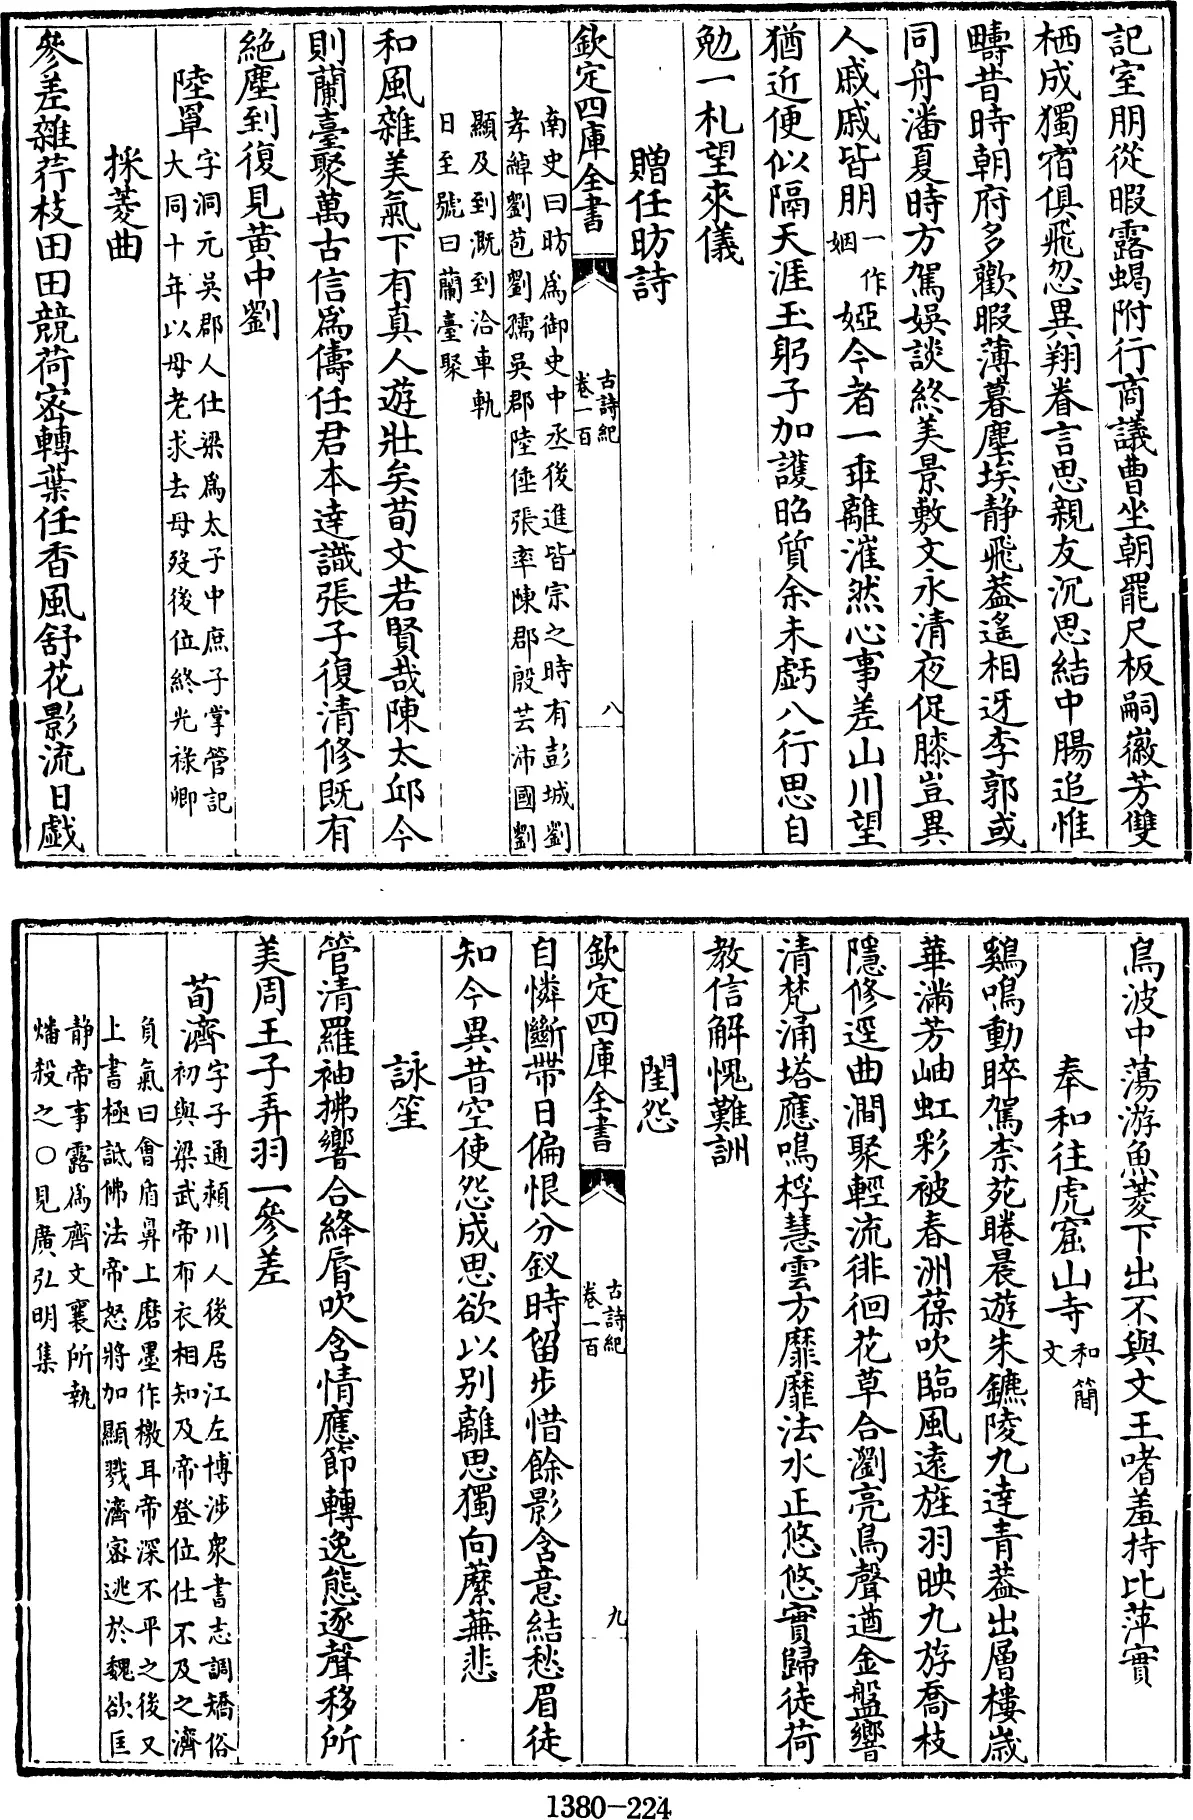 記室朋從暇露蝎附行商議曹坐朝罷尺板嗣徽芳雙
栖成獨宿俱飛忽異翔眷言思親友沉思結中腸追惟
疇昔時朝府多歡暇薄暮塵埃靜飛蓋遙相迓李郭或
同舟潘夏時方駕娛談終美景敷文永清夜促膝豈異
人戚戚皆朋一作姻婭今者一乖離漼然心事差山川望
猶近便似隔天涯玉躬子加護昭質余未虧八行思自
勉一札望來儀
贈任昉詩
南史曰昉為御史中丞後進皆宗之時有彭城劉
孝綽劉苞劉孺吳郡陸倕張率陳郡殷芸沛國劉
欽定四庫全書
古詩紀
卷一百
八
顯及到溉到洽車軌
日至號曰蘭臺聚
和風雜美氣下有真人遊壯矣荀文若賢哉陳太邱今
則蘭臺聚萬古信為儔任君本達識張子復清修既有
絕塵到復見黃中劉
陸罩字洞元吳郡人仕梁為太子中庶子掌管記
大同十年以母老求去母歿後位終光祿卿
採菱曲
參差雜荇枝田田競荷密轉葉任香風舒花影流日戲
鳥波中蕩游魚菱下出不與文王嗜羞持比萍實
奉和往虎窟山寺和簡文
鷄鳴動睟駕柰苑睠晨遊朱鑣陵九達青蓋出層樓歲
華滿芳岫虹彩被春洲葆吹臨風遠旌羽映九斿喬枝
隱修逕曲澗聚輕流徘徊花草合瀏亮鳥聲遒金盤響
清梵涌塔應鳴桴慧雲方靡靡法水正悠悠實歸徒荷
教信解愧難訓
閨怨
欽定四庫全書
古詩紀
卷一百
九
自憐斷帶日偏恨分釵時留步惜餘影含意結愁眉徒
知今異昔空使怨成思欲以别離思獨向蘼蕪悲
詠笙
管清羅袖拂響合絳脣吹含情應節轉逸態逐聲移所
美周王子弄羽一參差
荀濟字子通頴川人後居江左博涉衆書志調矯俗
初與梁武帝布衣相知及帝登位仕不及之濟
負氣曰會盾鼻上磨墨作檄耳帝深不平之後又
上書極詆佛法帝怒將加顯戮濟密逃於魏欲匡
靜帝事露為齊文襄所執
燔殺之○見廣弘明集
1380-224